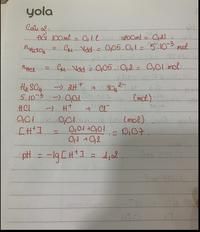 yola
Câu 2:
100ml = 0,1 l 200ml = 0,2l
nH₂SO₄ = CM . Vdd = 0,05 . 0,1 = 5.10⁻³ mol
nHCl = CM . Vdd = 0,05 . 0,2 = 0,01 mol
H₂SO₄ → 2H⁺ + SO₄²⁻
5.10⁻³ → 0,01 (mol)
HCl → H⁺ + Cl⁻
0,01 0,01 (mol)
[H⁺] = (0,01+0,01)/(0,1+0,2) = 0,07
pH = -lg[H⁺] = 1,2